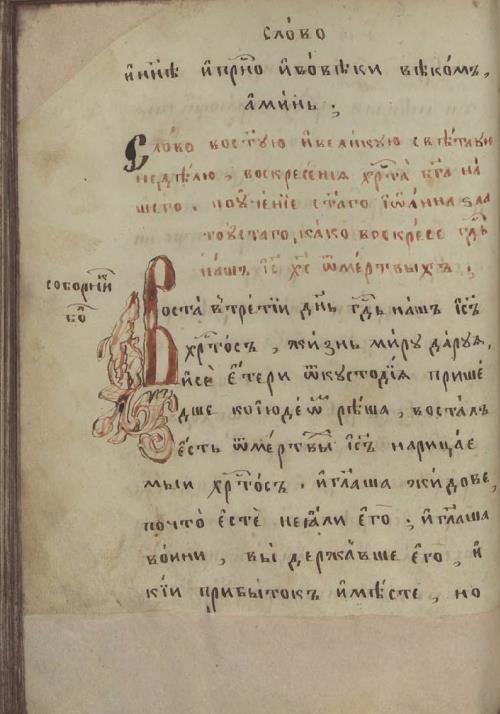 слово
и҆нн҃ѣ и҆прⷭ҇но и҆вовѣки вѣкѡ́мъ,
а҆ми́нь ;
Сло́во востꙋ́ю и҆вели́кꙋю свѣ́тлꙋю
недѣ́лю, воскресе́нїѧ хрⷭ҇та̀ бг҃а на́
шего. поꙋче́нїе ст҃а́го і҆ѡа́нна зла
тоꙋ́стаго, ка́ко воскре́се гдⷭ҇ь
на́шъ і҆с҃ъ хс҃ ѿме́ртвыхъ ;
собо́рникъ
Воста̀ втре́тїи дн҃ь гдⷭ҇ь на́шъ і҆с҃ъ
хрⷭ҇то́съ, жи́знь ми́рꙋ дарꙋ́ѧ,
и҆сѐ е҆́тери ѿкꙋстоді́ѧ прише́
дше кої҆юде́ѡм рѣ́ша, воста́лъ
е҆́сть ѿме́ртвы і҆с҃ъ нарица́е
мыи хрⷭ҇то́съ. и҆гл҃аша жи́дове,
почто̀ е҆стѐ неꙗ҆́ли е҆го̀ ; и҆гл҃аша
во́ини, вы̀ держа́вше е҆го̀, и҆
кі́и прибы́токъ и҆мѣ́сте, но